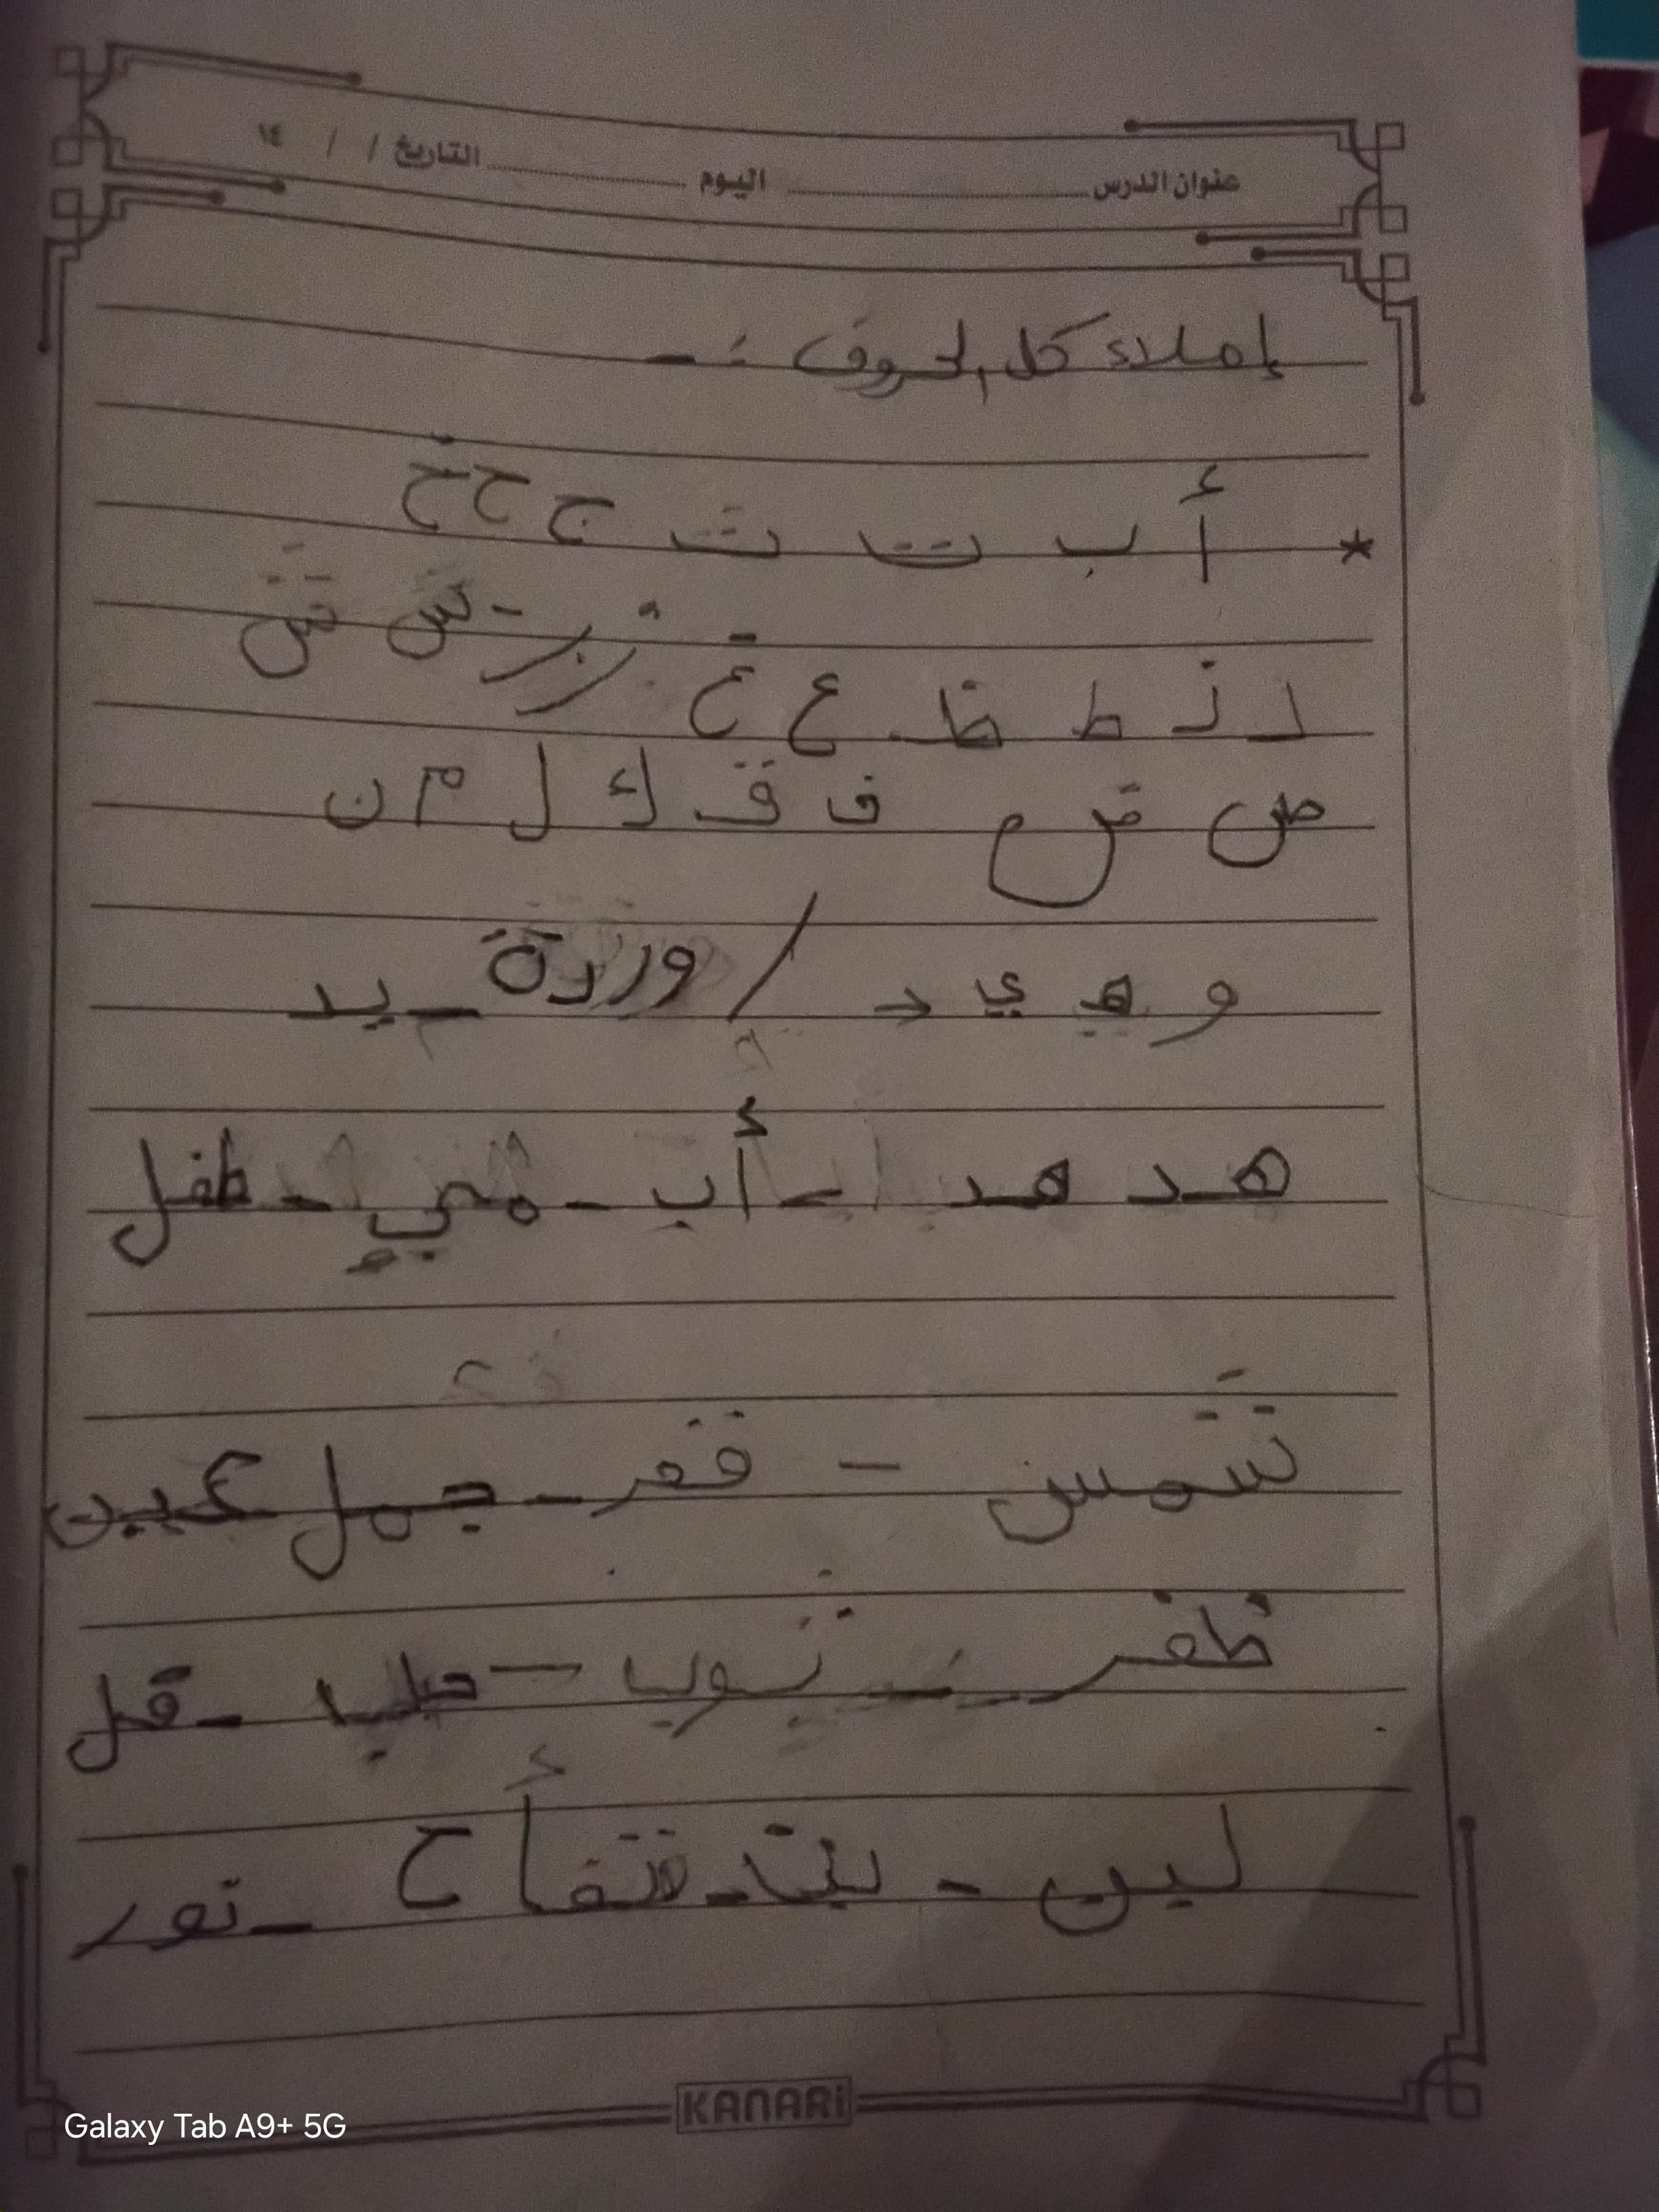 عنوان الدرس اليوم التاريخ / / ١٤
إملاء كل الحروف :-
* أ ب ت ث ج ح خ
د ذ ط ظ ع غ ر ز س ش
ص ض م ف ق ك ل م ن
و ه ي د / وردة - يد
هد هد - أب - مي - طفل
شمس - قمر - جمل عين
ظفر - ثوب - حليب - فل
لين - بيت - تفأح - نور
KANARi
Galaxy Tab A9+ 5G